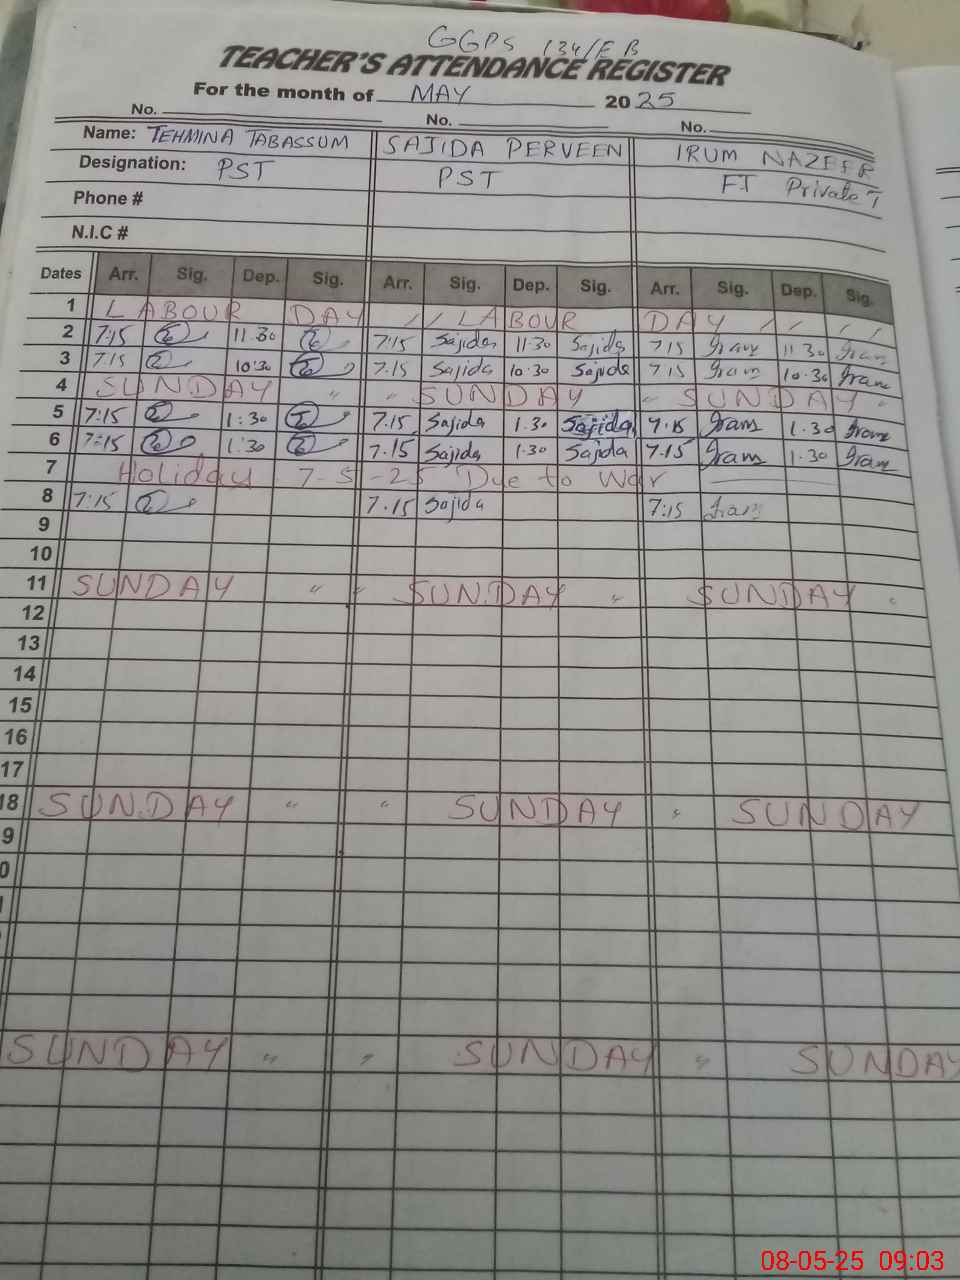 GGPS 134/EB
TEACHER'S ATTENDANCE REGISTER
For the month of MAY 2025
No. No. No.
Name: TEHMINA TABASSUM SAJIDA PERVEEN IRUM NAZEER
Designation: PST PST FT Private T
Phone #
N.I.C #
Dates Arr. Sig. Dep. Sig. Arr. Sig. Dep. Sig. Arr. Sig. Dep. Sig.
1 LABOUR DAY / / LABOUR DAY / / / /
2 7:15 11.30 7:15 Sajida 11.30 Sajida 7 15 Iram 11 30 Iram
3 7.15 10.30 7.15 Sajida 10.30 Sajida 7 15 Iram 10.30 Iram
4 SUNDAY " " SUNDAY " SUNDAY "
5 7:15 1:30 7.15 Sajida 1.30 Sajida 7.15 Iram 1.30 Iram
6 7:15 1:30 7.15 Sajida 1.30 Sajida 7.15 Iram 1.30 Iram
7 Holiday 7-5-25 Due to War
8 7:15 7.15 Sajida 7:15 Iram
9
10
11 SUNDAY " " SUNDAY " SUNDAY "
12
13
14
15
16
17
18 SUNDAY " " SUNDAY " SUNDAY
9
0
SUNDAY " " SUNDAY " SUNDAY
08-05-25 09:03